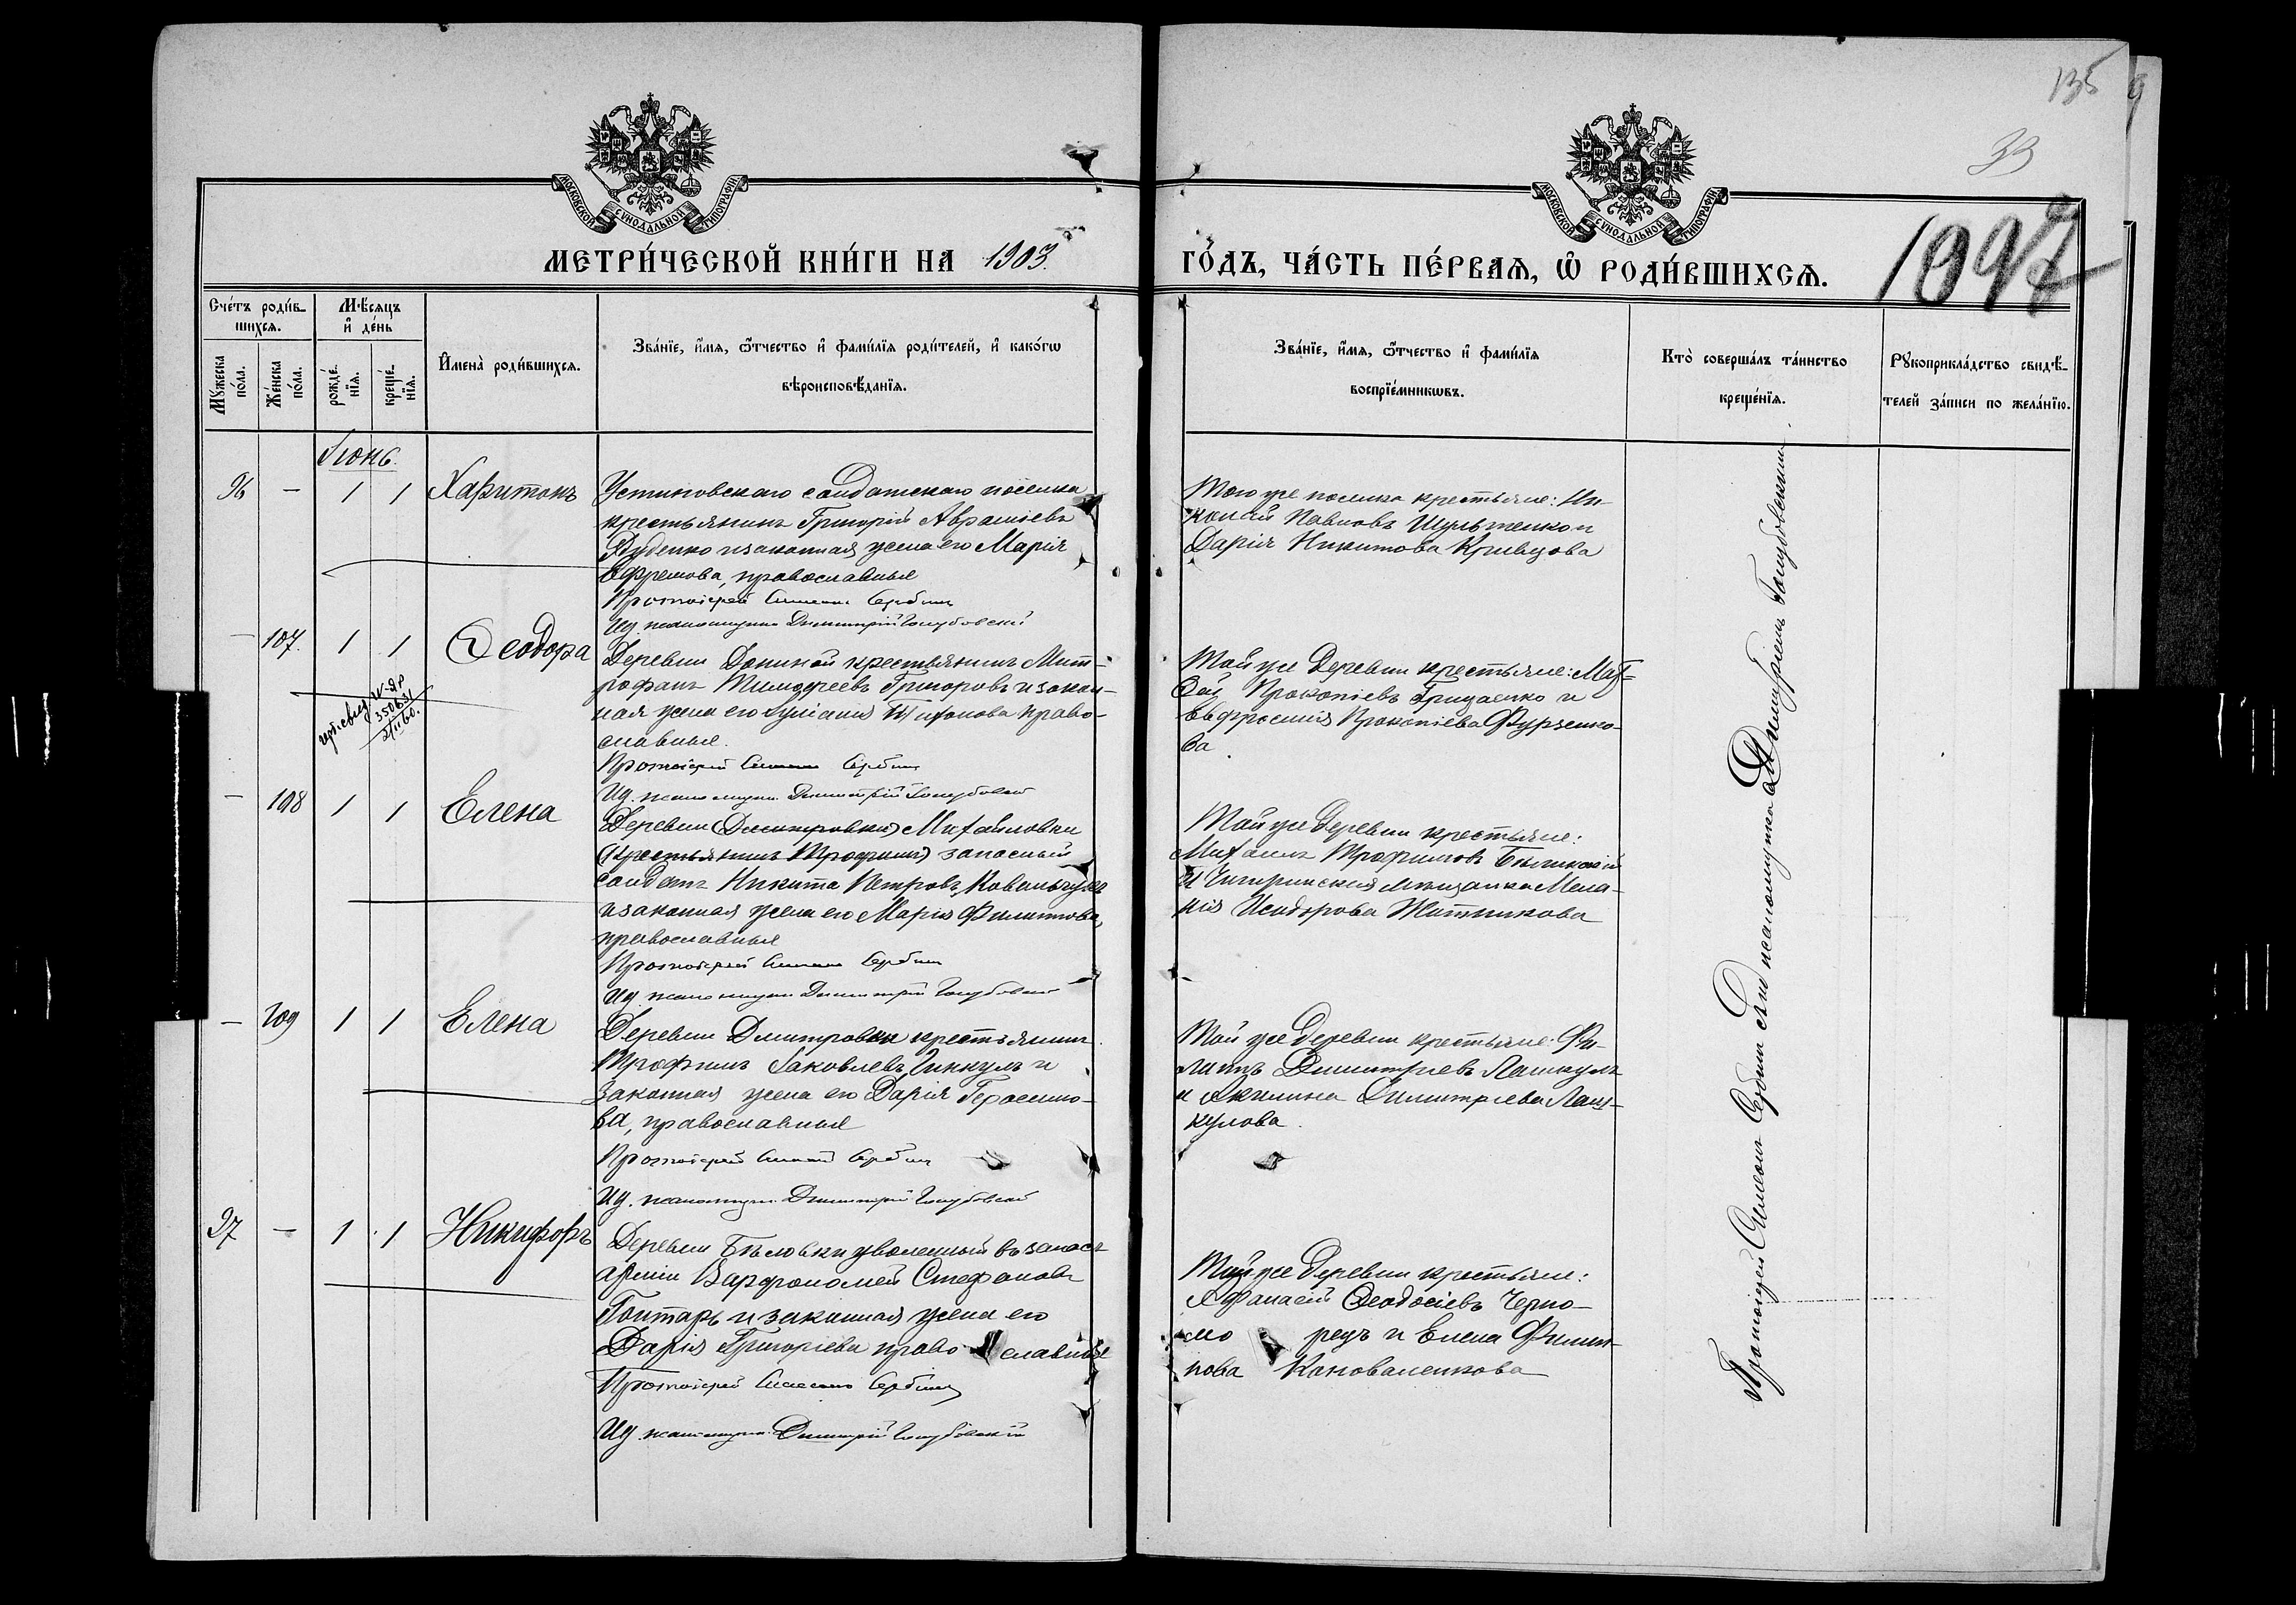 135
9
33
МОСКОВСКОЙ СѴНОДАЛЬНОЙ ТИПОГРАФІИ
МОСКОВСКОЙ СѴНОДАЛЬНОЙ ТИПОГРАФІИ
МЕТРИ́ЧЕСКОЙ КНИ́ГИ НА 1903.
ГО́ДЪ, ЧА́СТЬ ПЕ́РВАѦ, Ѡ҆ РОДИ́ВШИХСѦ.
1097
Сче́тъ роди́в-
шихсѧ.
Мѣ́сѧцъ
и҆ де́нь
Мꙋ́жеска
по́ла.
Же́нска
по́ла.
рожде́-
нїѧ.
креще́-
нїѧ.
И҆мена̀ роди́вшихсѧ.
Зва́нїе, и҆́мѧ, ѻ҆́тчество и҆ фами́лїѧ роди́телей, и҆ како́гѡ
вѣроисповѣ́данїѧ.
Зва́нїе, и҆́мѧ, ѻ҆́тчество и҆ фами́лїѧ
воспрїе́мникѡвъ.
Кто̀ соверша́лъ та́инство
креще́нїѧ.
Рꙋкоприкла́дство свидѣ́-
телей за́писи по жела́нїю.
Іюнь.
96 — 1 1 Харитонъ
Устиновскаго солдатскаго поселка
крестьянинъ Григорій Аврамiевъ
Дуденко и законная жена его Марія
Ефремова, православные
Протоіерей Симеонъ Сербинъ
Ид. псаломщика Димитрій Голубовскій
Того же поселка крестьяне: Ни-
колай Павловъ Шульженко и
Дарія Никитова Кривцова
— 107. 1 1 Ѳеодора
Деревни Дониной крестьянинъ Мит-
рофанъ Тимоѳеевъ Григоровъ и закон-
ная жена его Іуліанія Тихонова право-
славные.
Протоіерей Симеонъ Сербинъ
Ид. псаломщика Димитрій Голубовскій
350631
Той же деревни крестьяне: Мат-
ѳей Прокопіевъ Грицаенко и
Евфросинія Прокопіева Фурзенко-
ва
— 108 1 1 Елена
Деревни (Димитровки) Михайловки
(крестьянинъ Трофимъ) запасный
солдатъ Никита Петровъ Ковальчукъ
и законная жена его Марія Филиппова,
православные
Протоіерей Симеонъ Сербинъ
Ид. псаломщика Димитрій Голубовскій
Той же деревни крестьяне:
Михаилъ Трофимовъ Бѣлинскій
и Чигиринская мѣщанка Мела-
нія Исидорова Житникова
— 109 1 1 Елена
Деревни Дмитровки крестьянинъ
Трофимъ Іаковлевъ Чиккулъ и
законная жена его Дарія Герасимо-
ва, православные
Протоіерей Симеонъ Сербинъ
Ид. псаломщика Димитрій Голубовскій
Той же деревни крестьяне: Фи-
липпъ Димитріевъ Лашкулъ
и Акилина Димитріева Лаш-
кулова.
97 — 1 1 Никифоръ
Деревни Бѣловки уволенный въ запасъ
арміи Варфоломей Стефановъ
Гонтарь и законная жена его
Дарія Григоріева православные
Протоіерей Симеонъ Сербинъ
Ид. псаломщика Димитрій Голубовскій
Той же деревни крестьяне:
Аѳанасій Ѳеодосіевъ Черно-
мо рецъ и Елена Филип-
пова Коноваленкова
Протоіерей Симеонъ Сербинъ съ и. д. псаломщика Димитріемъ Голубовскимъ.